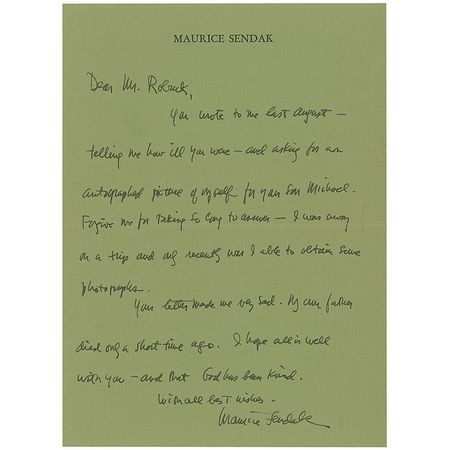 MAURICE SENDAK
Dear Mr. Robuck,
You wrote to me last August —
telling me how ill you were — and asking for an
autographed picture of myself for your son Michael.
Forgive me for taking so long to answer — I was away
on a trip and only recently was I able to obtain some
photographs.
Your letter made me very sad. My own father
died only a short time ago. I hope all is well
with you — and that God has been kind.
With all best wishes -
Maurice Sendak